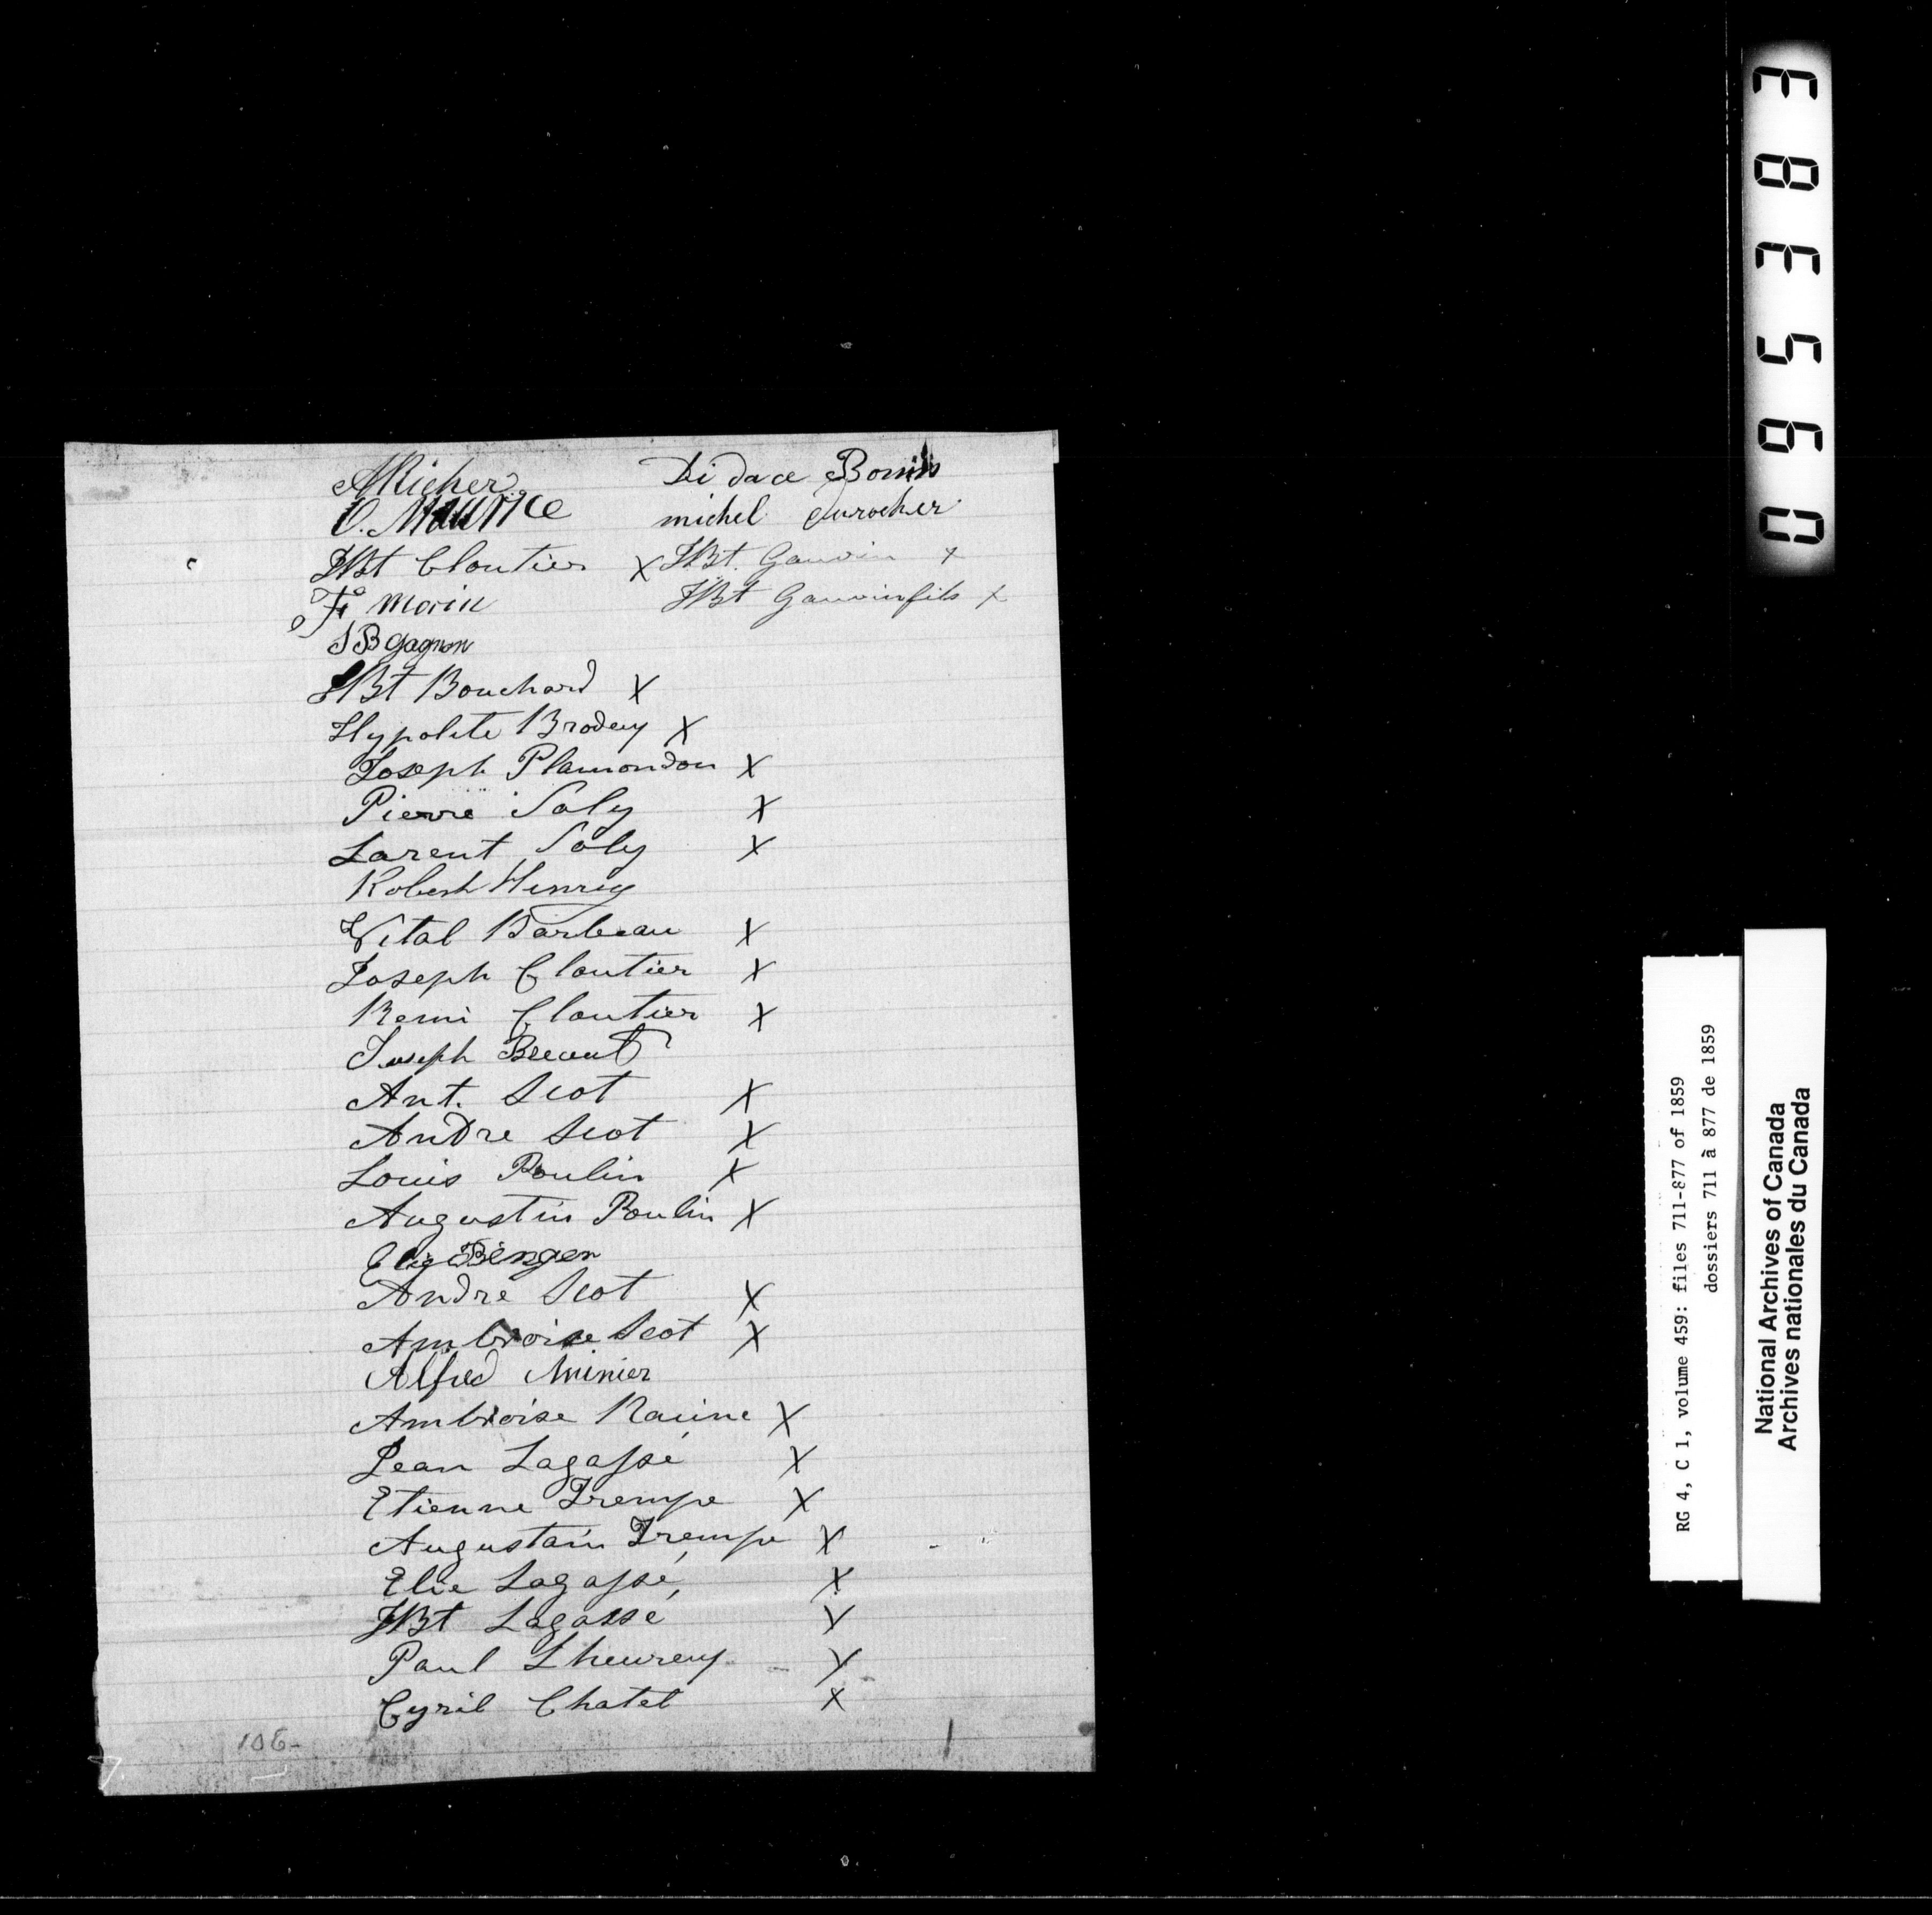 A Richer
O. Maurice
JBt Cloutier X
Fr Morin
J B Gagnon
JBt Bouchard X
Hypolite Brodeuy X
Joseph Plamondon X
Pierre Soly X
Larent Soly X
Robert Henrey
Vital Barbeau X
Joseph Cloutier X
Remi Cloutier X
Joseph
Ant. Scot X
Andre Scot X
Louis Poulin X
Augustin Poulin X
Andre Scot X
Ambroise Scot X
Alfred Minier
Ambroise Racine X
Jean Lagassé X
Etienne Trempe X
Augustain Trempe X
Elie Lagassé, X
JBt Lagassé X
Paul Lheureuy X
Cyril Chatel X
Didace
michel durocher
JBt. Gauvin X
JBt Gauvin fils X
106-
09538 3
RG 4, C 1, volume 459: files 711-877 of 1859
dossiers 711 à 877 de 1859
National Archives of Canada
Archives nationales du Canada